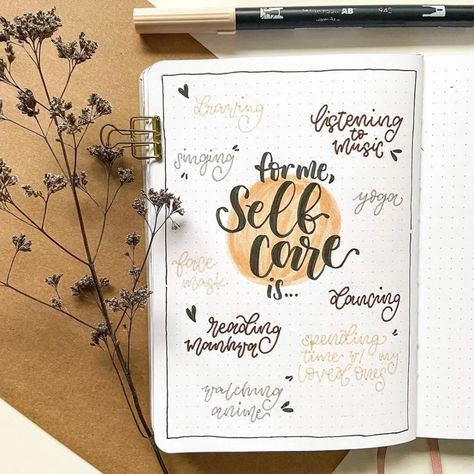 AB
945
drawing
listening
to
music
singing
for me,
self
care
is...
yoga
face
mask
dancing
reading
manhwa
spending
time w/ my
loved ones
watching
anime